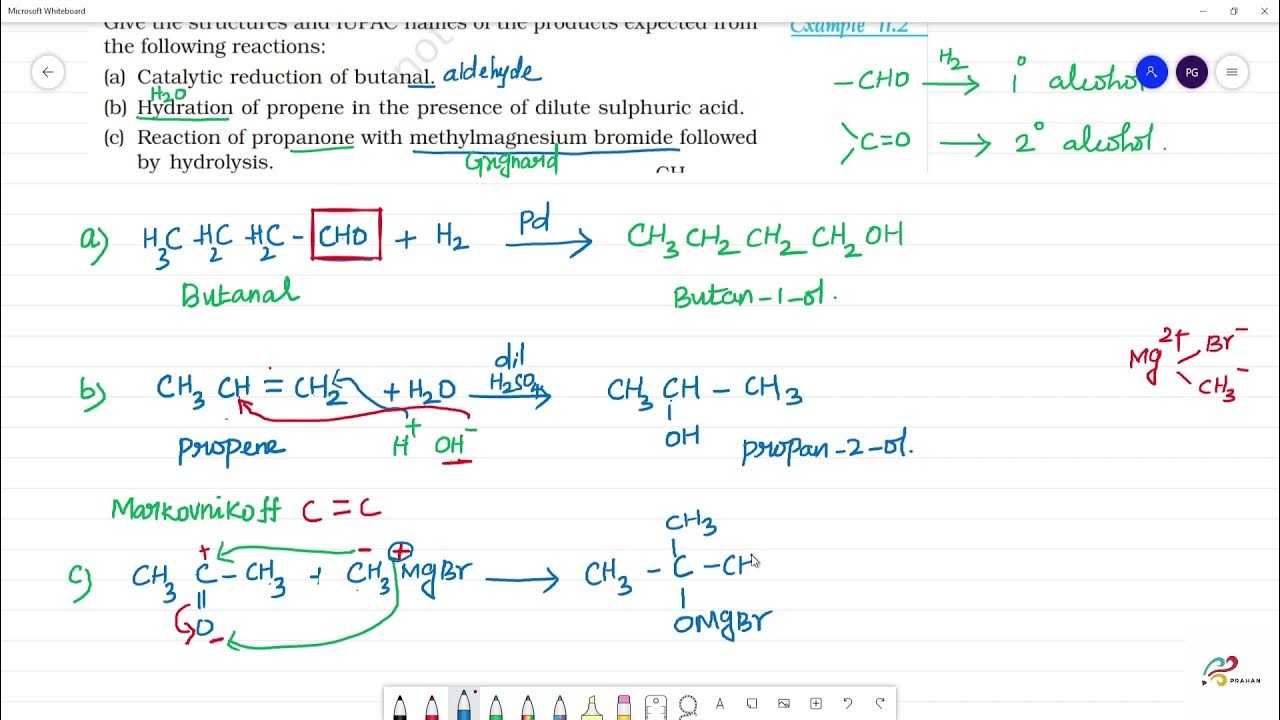 Microsoft Whiteboard
Give the structures and IUPAC names of the products expected from
the following reactions:
Example 11.2
(a) Catalytic reduction of butanal. aldehyde
H2O
(b) Hydration of propene in the presence of dilute sulphuric acid.
(c) Reaction of propanone with methylmagnesium bromide followed
by hydrolysis.
Grignard
CH
not
PG
-CHO H2 → 1° alcohol
>C=O → 2° alcohol.
a) H3C H2C H2C - CHO + H2 Pd → CH3 CH2 CH2 CH2 OH
Butanal
Butan-1-ol.
Mg 2+ Br -
CH3 -
b) CH3 CH = CH2 + H2O dil H2SO4 → CH3 CH - CH3
OH
H+ OH-
propene
propan-2-ol.
Markovnikoff C = C
c) CH3 C - CH3 + CH3 MgBr → CH3 - C - CH
+ - +
|| O -
CH3
OMgBr
A
PRAHAN